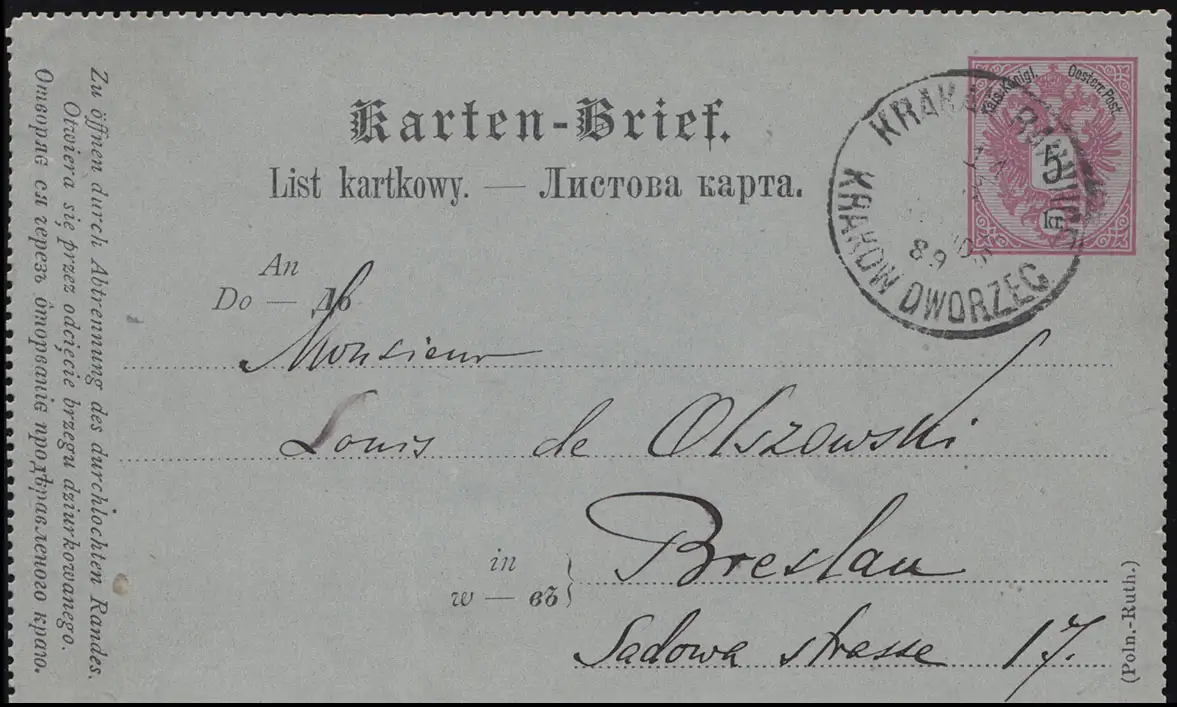 Karten-Brief.
List kartkowy. — Листова карта.
An
Do — До
Monsieur
Louis de Olszowski
in
w — въ
Breslau
Sadowa strasse 17.
Kais. Königl. Oesterr. Post.
5
kr.
KRAKAU BAHNHOF
89
KRAKÓW DWORZEC
Zu öffnen durch Abtrennung des durchlochten Randes.
Otwiera się przez odcięcie brzegu dziurkowanego.
Отворяє ся черезъ ôторванїє продѣравленого краю.
(Poln.-Ruth.)